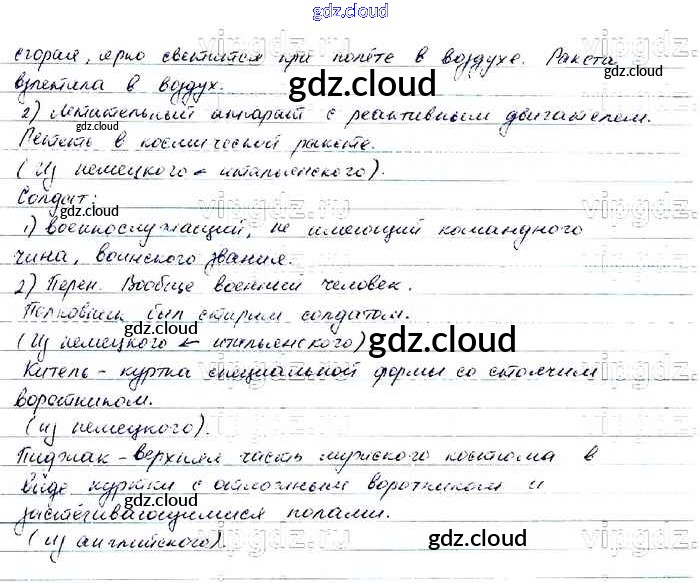 gdz.cloud
сгорая, ярко светится при полёте в воздухе. Ракета
взлетила в воздух.
gdz.cloud
2) Летательный аппарат с реактивным двигателем.
gdz.cloud
Лететь в космической ракете.
(Из немецкого ← итальянского).
Солдат:
gdz.cloud
1) военнослужащий, не имеющий командного
чина, воинского звания.
2) Перен. Вообще военный человек.
Полковник был старым солдатом.
gdz.cloud
(Из немецкого ← итальянского)
gdz.cloud
Китель - куртка специальной формы со стоячим
воротником.
(из немецкого).
gdz.cloud
Пиджак - верхняя часть мужского костюма в
виде куртки с отложным воротником и
gdz.cloud
застёгивающимися полами.
(Из английского).
gdz.cloud
vipgdz.ru